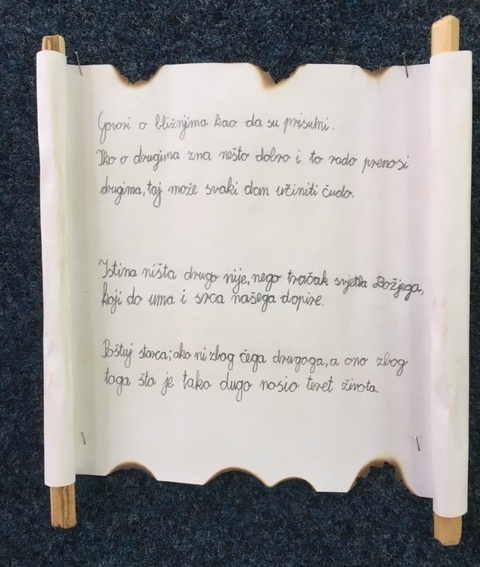 Govori o bližnjima kao da su prisutni.
Tko o drugima zna nešto dobro i to rado prenosi
drugima, taj može svaki dan učiniti čudo.
Istina ništa drugo nije, nego tračak svjetla Božjega,
koji do uma i srca našega dopire.
Poštuj starca; ako ni zbog čega drugoga, a ono zbog
toga što je tako dugo nosio teret života.